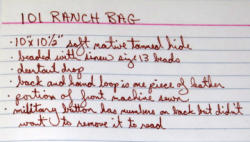 101 RANCH BAG
· 10"x10½" soft native tanned hide
· beaded with sinew size 13 beads
· dentant drop
· back and hand loop is one piece of leather
· portion of front machine sewn
· military button has numbers on back but didn't
want to remove it to read